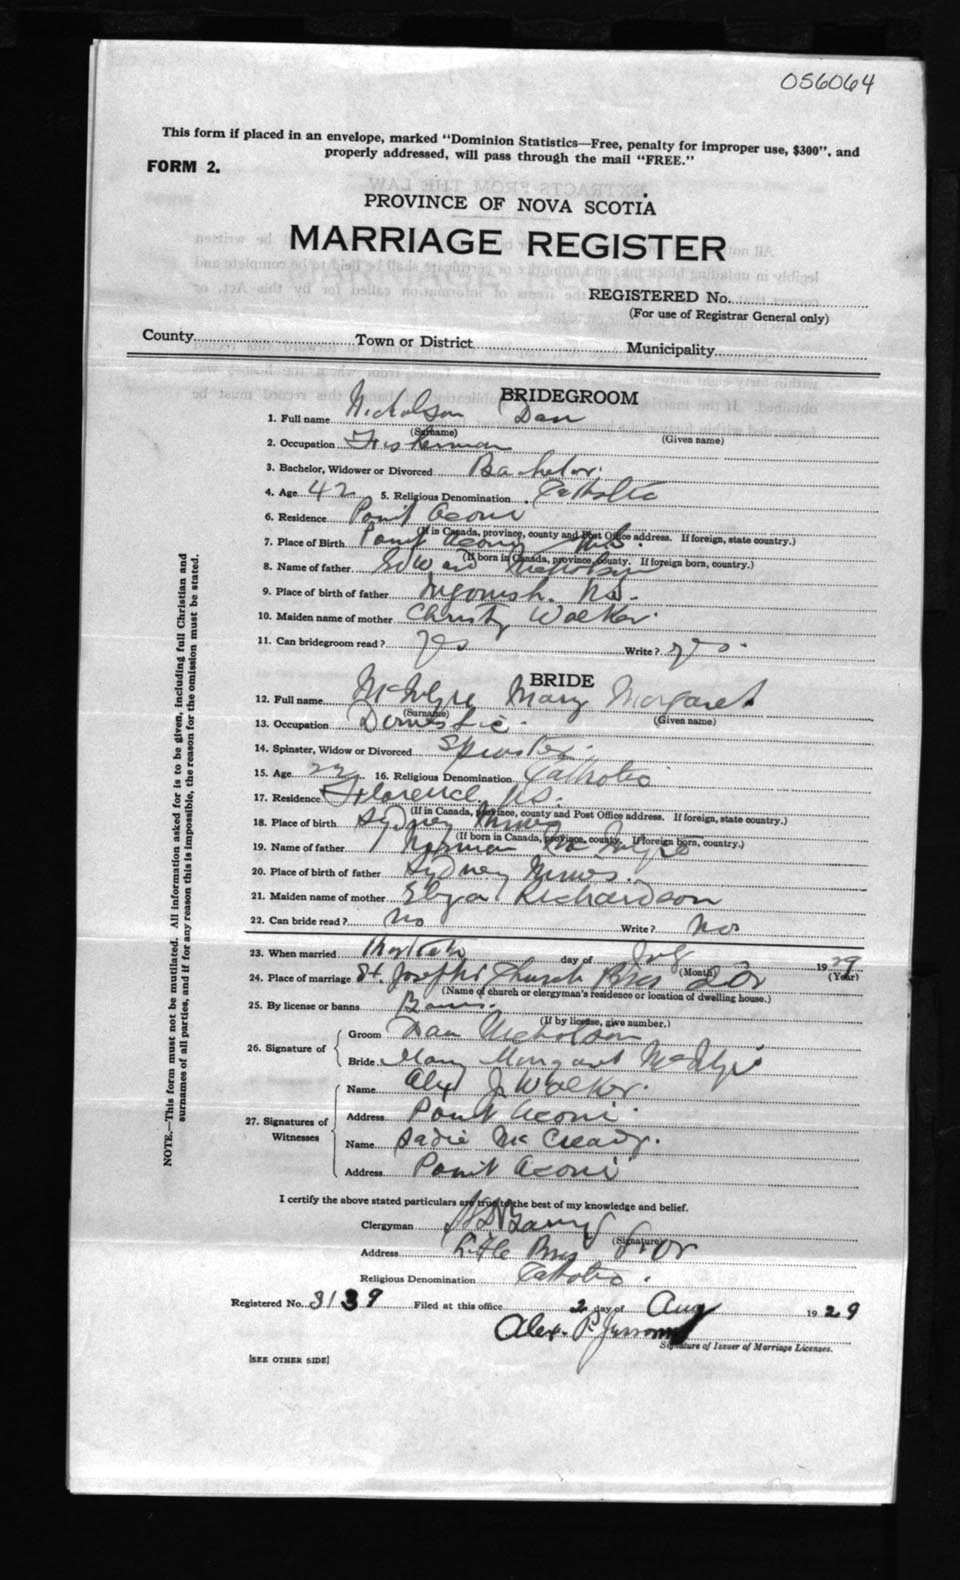 056064
This form if placed in an envelope, marked "Dominion Statistics—Free, penalty for improper use, $300", and
properly addressed, will pass through the mail "FREE."
FORM 2.
PROVINCE OF NOVA SCOTIA
MARRIAGE REGISTER
REGISTERED No.
(For use of Registrar General only)
County Town or District Municipality
BRIDEGROOM
1. Full name Nicholson Dan
(Surname) (Given name)
2. Occupation Fisherman
3. Bachelor, Widower or Divorced Bachelor.
4. Age 42 5. Religious Denomination Catholic
6. Residence Point Aconi
(If in Canada, province, county and Post Office address. If foreign, state country.)
7. Place of Birth Point Aconi N.S.
(If born in Canada, province, county. If foreign born, country.)
8. Name of father Edward Nicholson
9. Place of birth of father Ingonish. N.S.
10. Maiden name of mother Christy Walker.
11. Can bridegroom read? Yes Write? yes.
BRIDE
12. Full name McIntyre Mary Margaret
(Surname) (Given name)
13. Occupation Domestic.
14. Spinster, Widow or Divorced Spinster.
15. Age 22 16. Religious Denomination Catholic
17. Residence Florence N.S.
(If in Canada, province, county and Post Office address. If foreign, state country.)
18. Place of birth Sydney Mines
(If born in Canada, province, county. If foreign born, country.)
19. Name of father Norman McIntyre
20. Place of birth of father Sydney Mines.
21. Maiden name of mother Richardson
22. Can bride read? No Write? No
23. When married day of July 1929
(Month) (Year)
24. Place of marriage St. Joseph's Church Bras D'Or
(Name of church or clergyman's residence or location of dwelling house.)
25. By license or banns Banns.
(If by license, give number.)
26. Signature of
Groom Dan Nicholson
Bride Mary Margaret McIntyre
27. Signatures of Witnesses
Name Alex J. Walker.
Address Point Aconi.
Name Sadie McCready.
Address Point Aconi
I certify the above stated particulars are true to the best of my knowledge and belief.
Clergyman
(Signature)
Address Little Bras D'Or
Religious Denomination Catholic.
Registered No. 3139 Filed at this office 2 day of Aug 1929
Alex. P.
Signature of Issuer of Marriage Licenses.
[SEE OTHER SIDE]
NOTE.—This form must not be mutilated. All information asked for is to be given, including full Christian and
surnames of all parties, and if for any reason this is impossible, the reason for the omission must be stated.